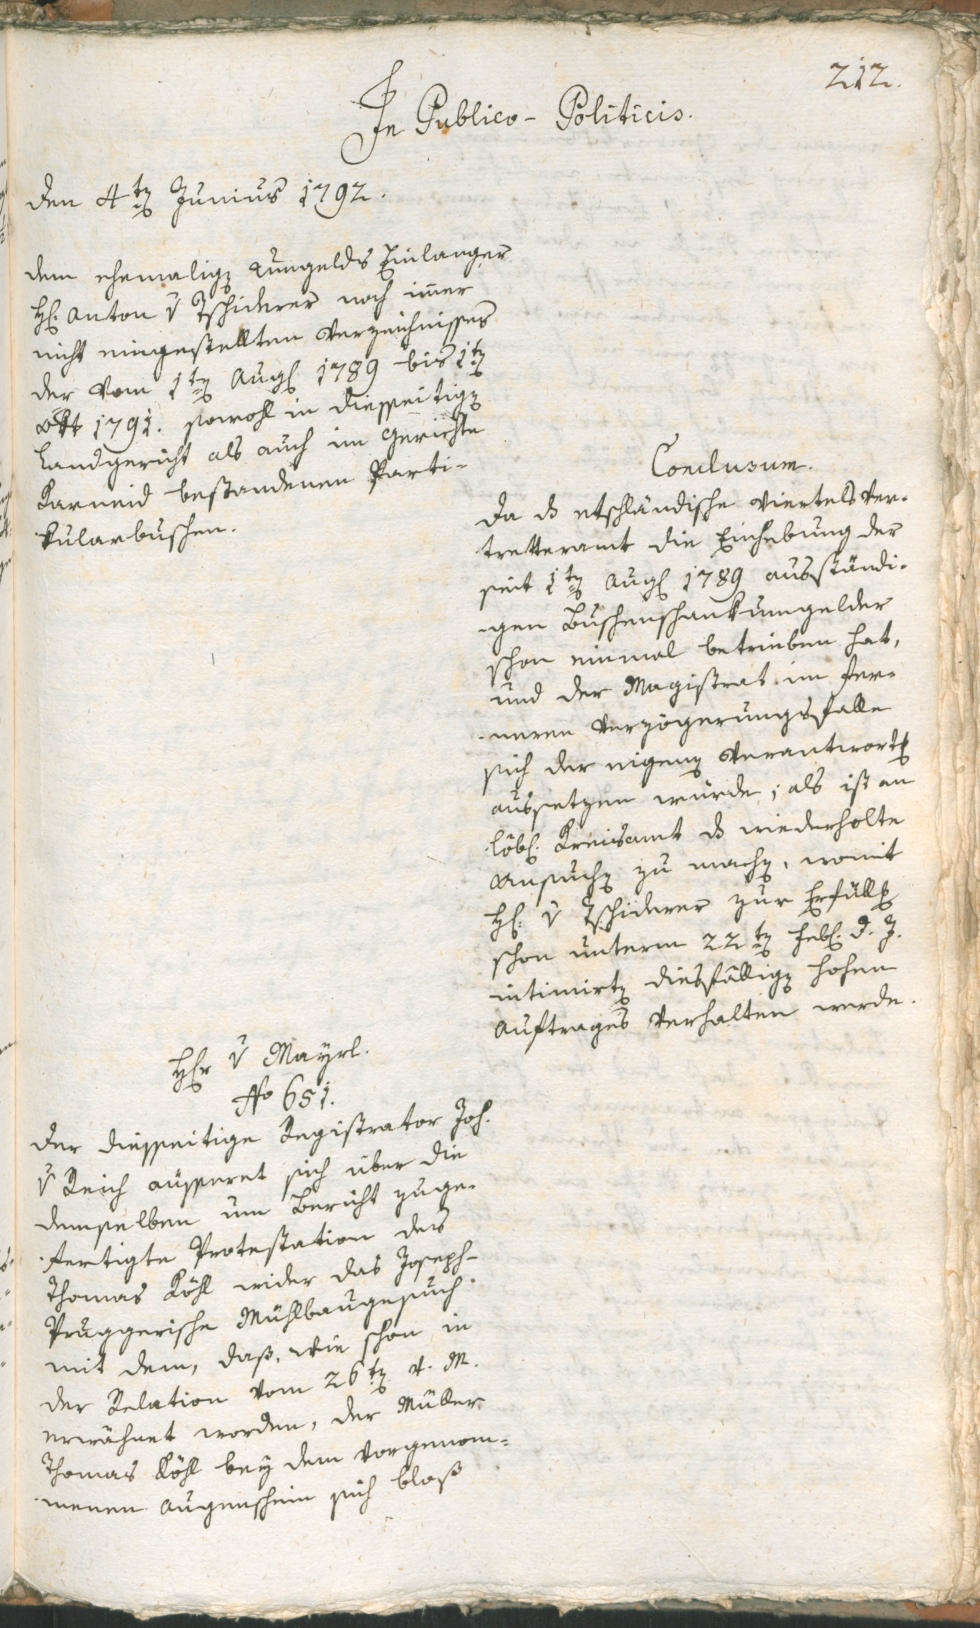 212.
In Publico-Politicis.
den 4ten Junius 1792.
dem ehemalig. Umgelds Einlanger
H. Anton v Tschiderer noch imer
nicht eingestellten Verzeichnisses
der vom 1ten Aug 1789 bis 1ten
Okt 1791. sowohl in diesseitigen
Landgericht als auch im Gerichte
Karneid bestandenen Parti-
kularbuschen.
Conclusum.
Da ds etschländische Viertelsver-
tretteramt die Einhebung der
seit 1ten Aug 1789 ausständi-
gen Buschenschankumgelder
schon einmal betrieben hat,
und der Magistrat im fer-
neren Verzögerungsfalle
sich der eigenen Verantwortg
aussetzen würde; als ist an
löbl. Kreisamt ds wiederholte
Ansuchen zu machen, womit
H. v Tschiderer zur Erfüllg
schon unterm 22ten Feb. d. J.
intimirten diesfälligen hohen
Auftrages verhalten werde.
Hr v Mayrl.
No 651.
Der diesseitige Registrator Joh.
v Reich äusseret sich über die
demselben um Bericht zuge-
fertigte Protestation des
Thomas Köhl wider das Joseph-
Pruggerische Mühlbaugesuch
mit dem, daß, wie schon in
der Relation vom 26ten v. M.
erwähnet worden, der Müller
Thomas Köhl bey dem vorgenom-
menen Augenschein sich bloß